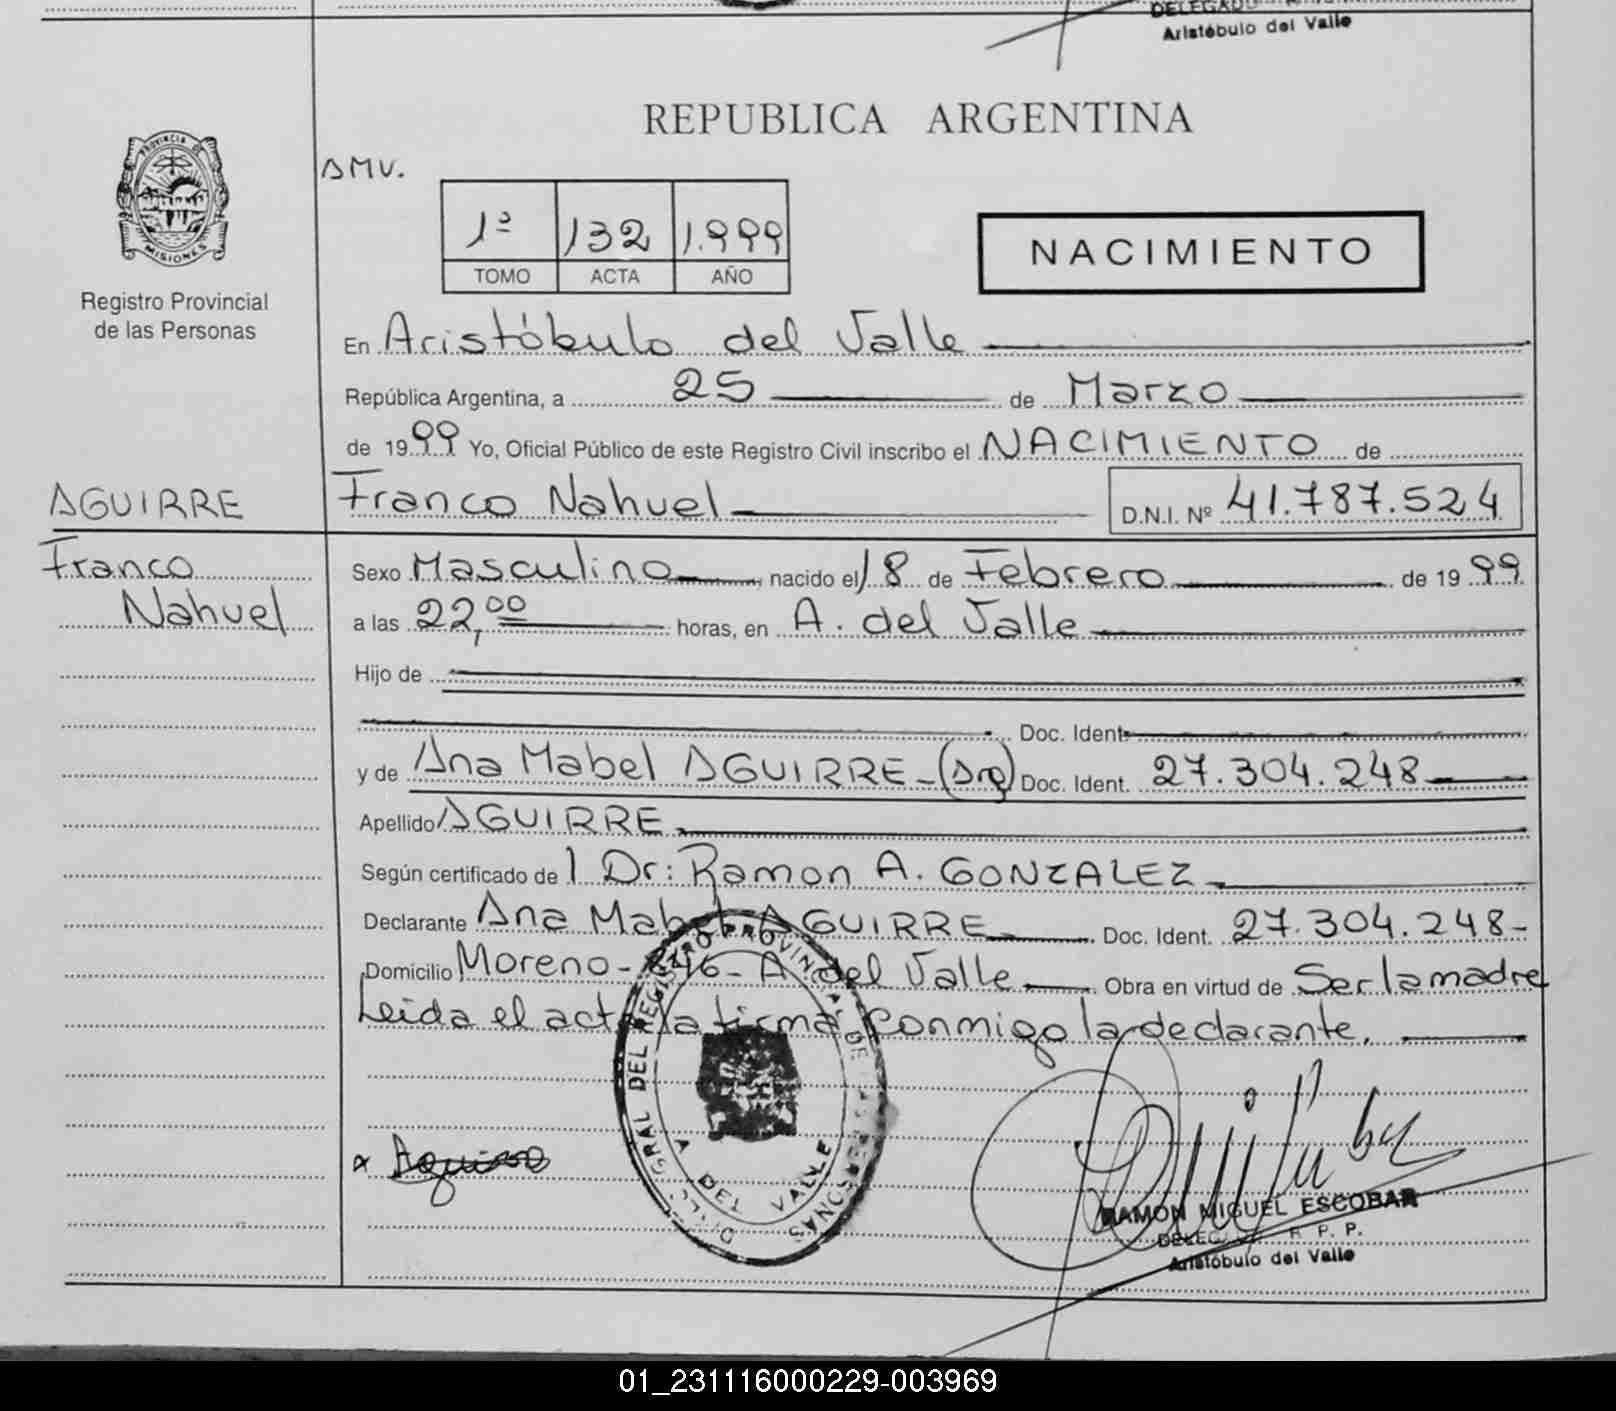 DELEGADO
Aristóbulo del Valle
REPUBLICA ARGENTINA
PROVINCIA DE
MISIONES
Registro Provincial
de las Personas
AMV.
1º 132 1.999
TOMO ACTA AÑO
NACIMIENTO
En Aristóbulo del Valle
República Argentina, a 25 de Marzo
de 1999 Yo, Oficial Público de este Registro Civil inscribo el NACIMIENTO de
AGUIRRE
Franco Nahuel
Franco Nahuel D.N.I. Nº 41.787.524
Sexo Masculino, nacido el 18 de Febrero de 1999
a las 22,00 horas, en A. del Valle
Hijo de
Doc. Ident.
y de Ana Mabel AGUIRRE - (Arg) Doc. Ident. 27.304.248
Apellido AGUIRRE
Según certificado de l Dr: Ramon A. GONZALEZ
Declarante Ana Mabel AGUIRRE Doc. Ident. 27.304.248-
Domicilio Moreno - - A. del Valle Obra en virtud de Ser la madre
Leida el acta la firma conmigo la declarante.
GRAL DEL REGISTRO PROVINCIAL DE PERSONAS
A DEL VALLE
x Aguirre
RAMON MIGUEL ESCOBAR
DELEGADO R. P. P.
Aristóbulo del Valle
01_231116000229-003969